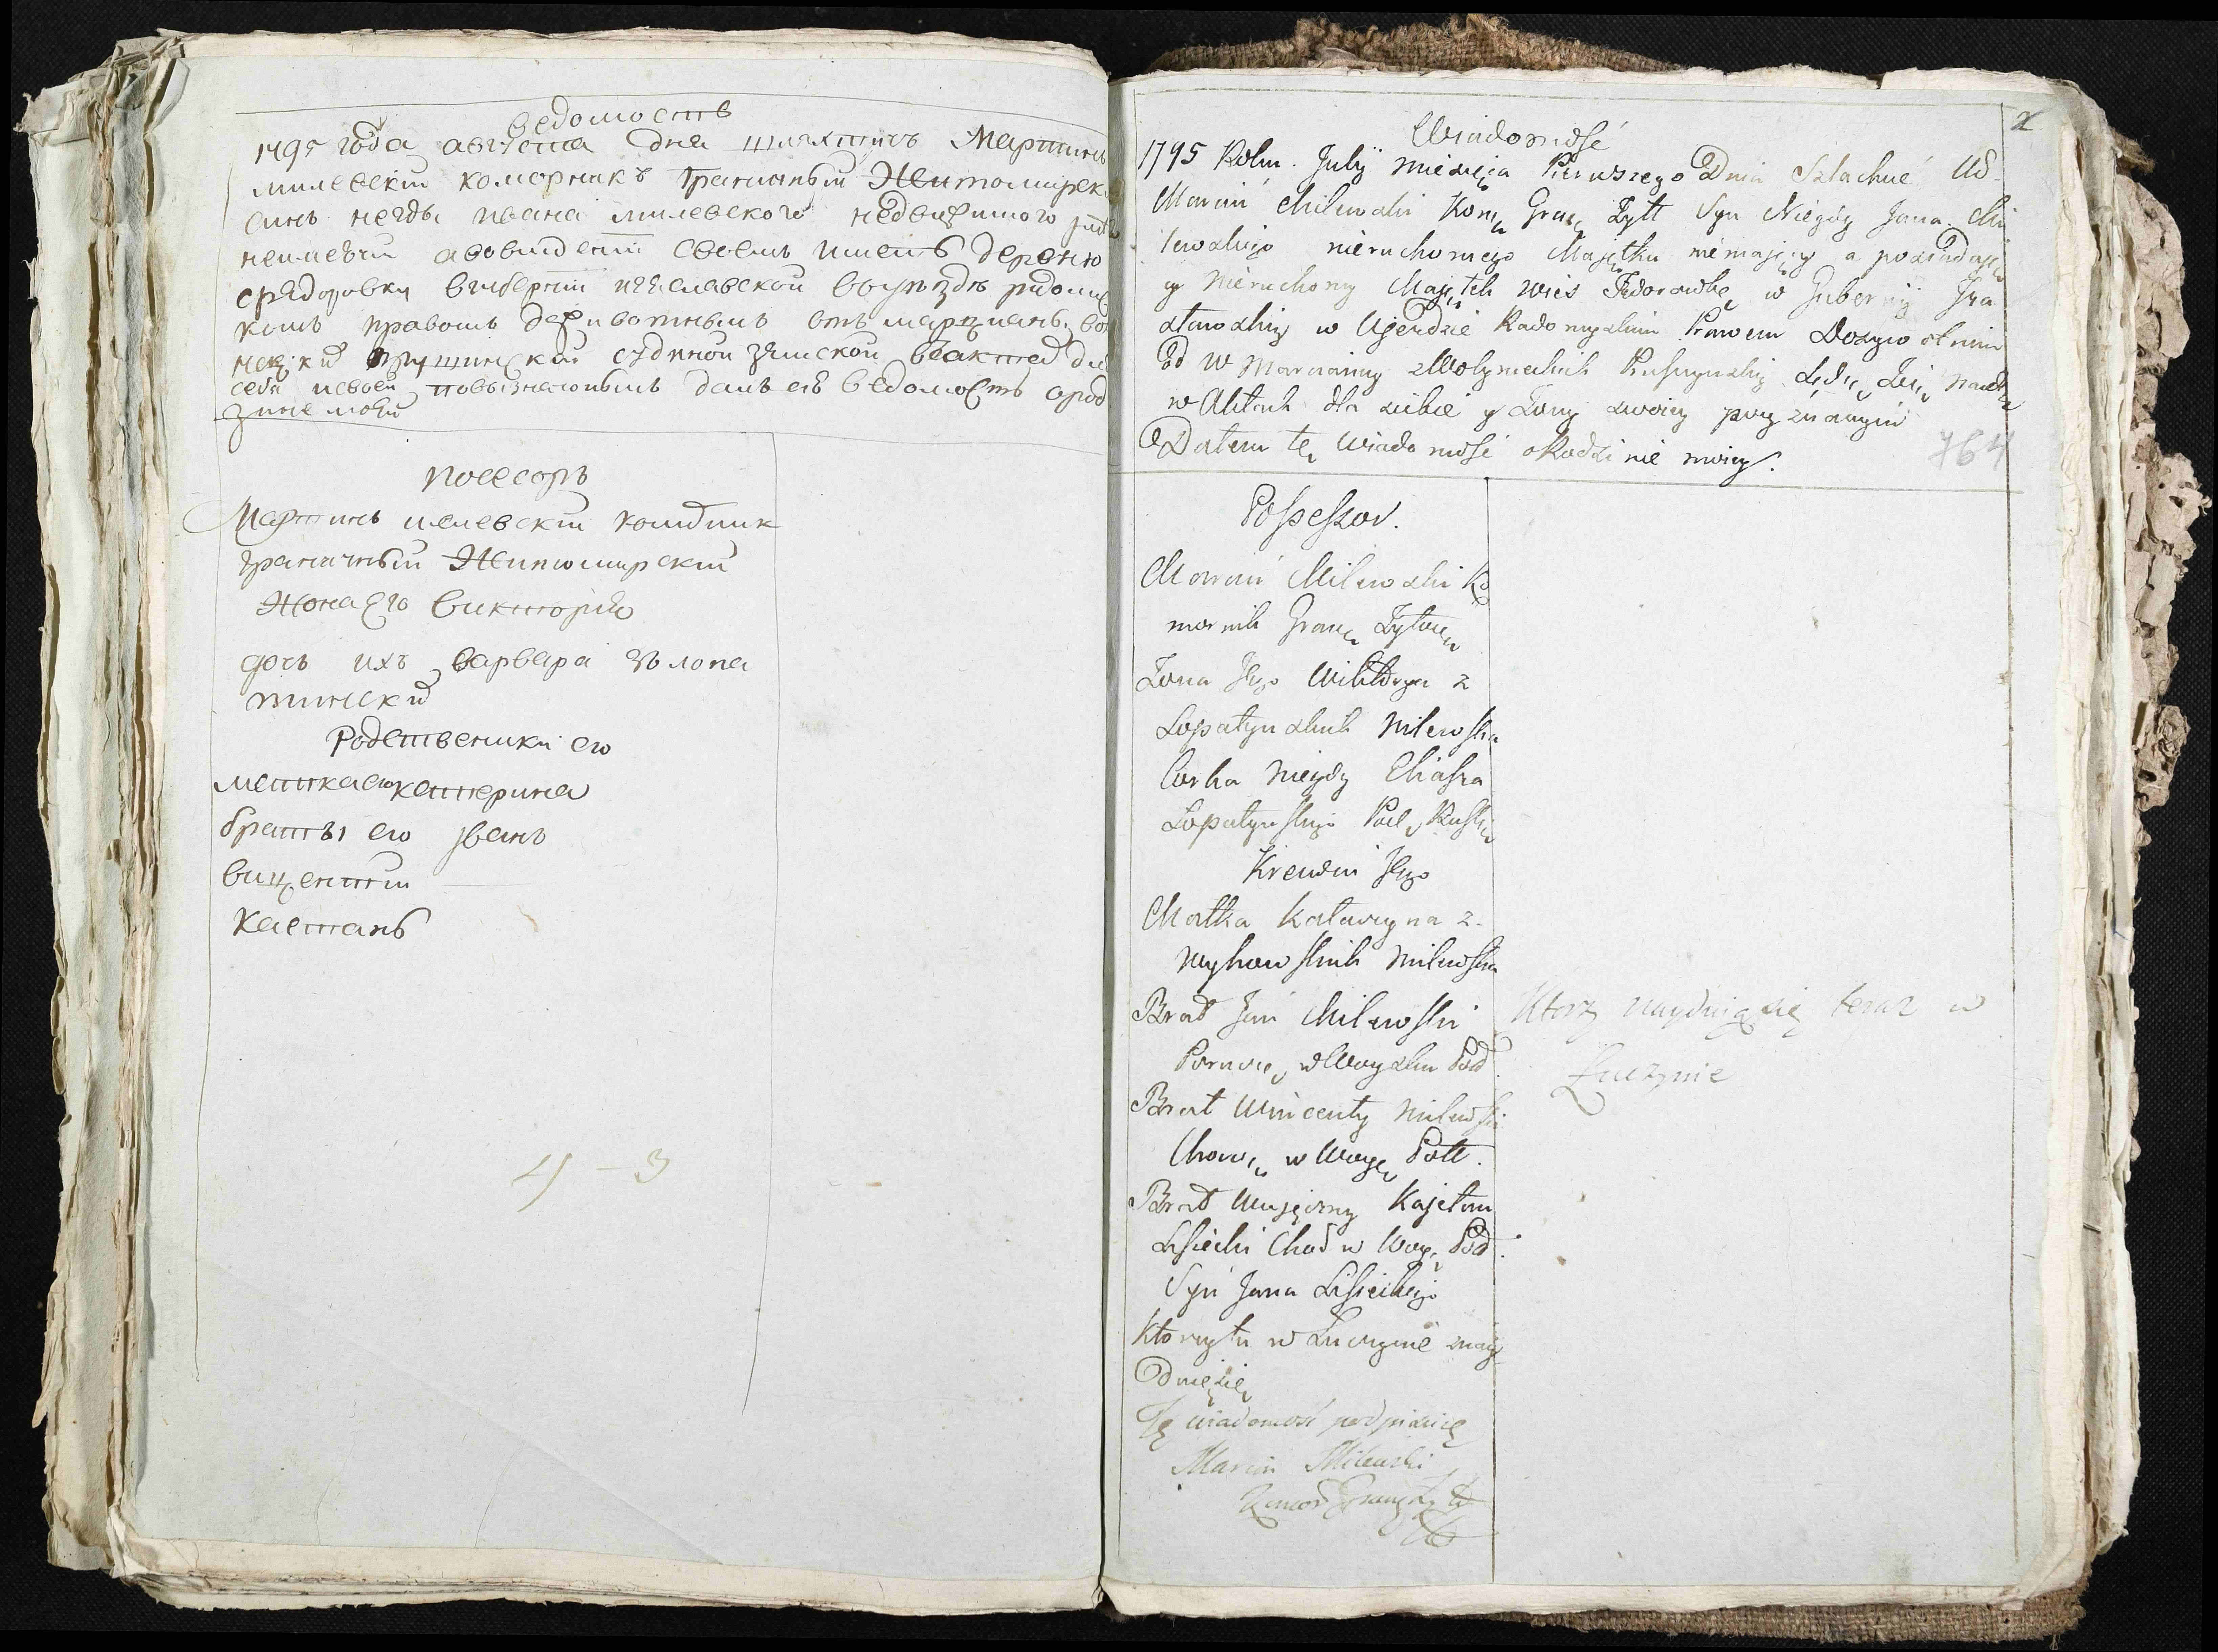 Ведомость
1795 года августа дня шляхтичъ Мартинъ
милевский коморникъ граничный Житомирск
синъ негды ивана милевского недвижимого
неимевши авовидении своемъ имеетъ деревню
вгубернии изяславской вуездѣ радомис
комъ правомъ дожывотнымъ отъ марцианы вол
судиной земской вактед для
себя исвоей даль сею ведомость о род
зине моей
посесоръ
Мартинъ милевский комдник
граничный Житомирский
Жона Его виктория
дочь ихъ варвара злопа
тински
Родственики его
матка его катерина
браты его иванъ
вицентий
каетанъ
4 – 3
2
Wiadomość
1795 Roku. July miesięca Pierwszego Dnia Szlachcic Ur.
Marcin Milewski Kom. Gran. Żytt Syn Niegdy Jana Mi
lewskiego nieruchomego Majątku niemający a posiadają
cy nieruchomy Majątek wieś Fedorowkę w Gubernij Iza
sławskiey w Ujezdzie Radomyslskim Prawem Dożywotnim
Od W Marcianny z Wolynieckich Sędz. Zie.
w Aktach dla siebie y Żony swoiey przyznanym
Datem tę Wiadomość o Rodzinie moiey.
764
Possessor.
Marcin Milewski Ko
mornik Gran. Żytom.
Żona Jego Wiktorya z
Łopatynskich Milewska
Corka Niegdy Eliasza
Łopatynskiego
Krewni Jego
Matka Katarzyna z
Wyhowskich Milewska
Brat Jan Milewski
Porucz. w Woysku Pod.
Brat Wincenty Milewski
Choro. w Woys. Poll.
Brat Wujeczny Kajetan
Lisiecki Chod w Woys. Pod.
Syn Jana Lisieckiego
Ktory tu w Łuczynie znay
Duie się
Ktorzy znayduią się teraz w
Łuczynie
Tę wiadomość podpisuię
Marcin Milewski
Komor Gran. Żyt